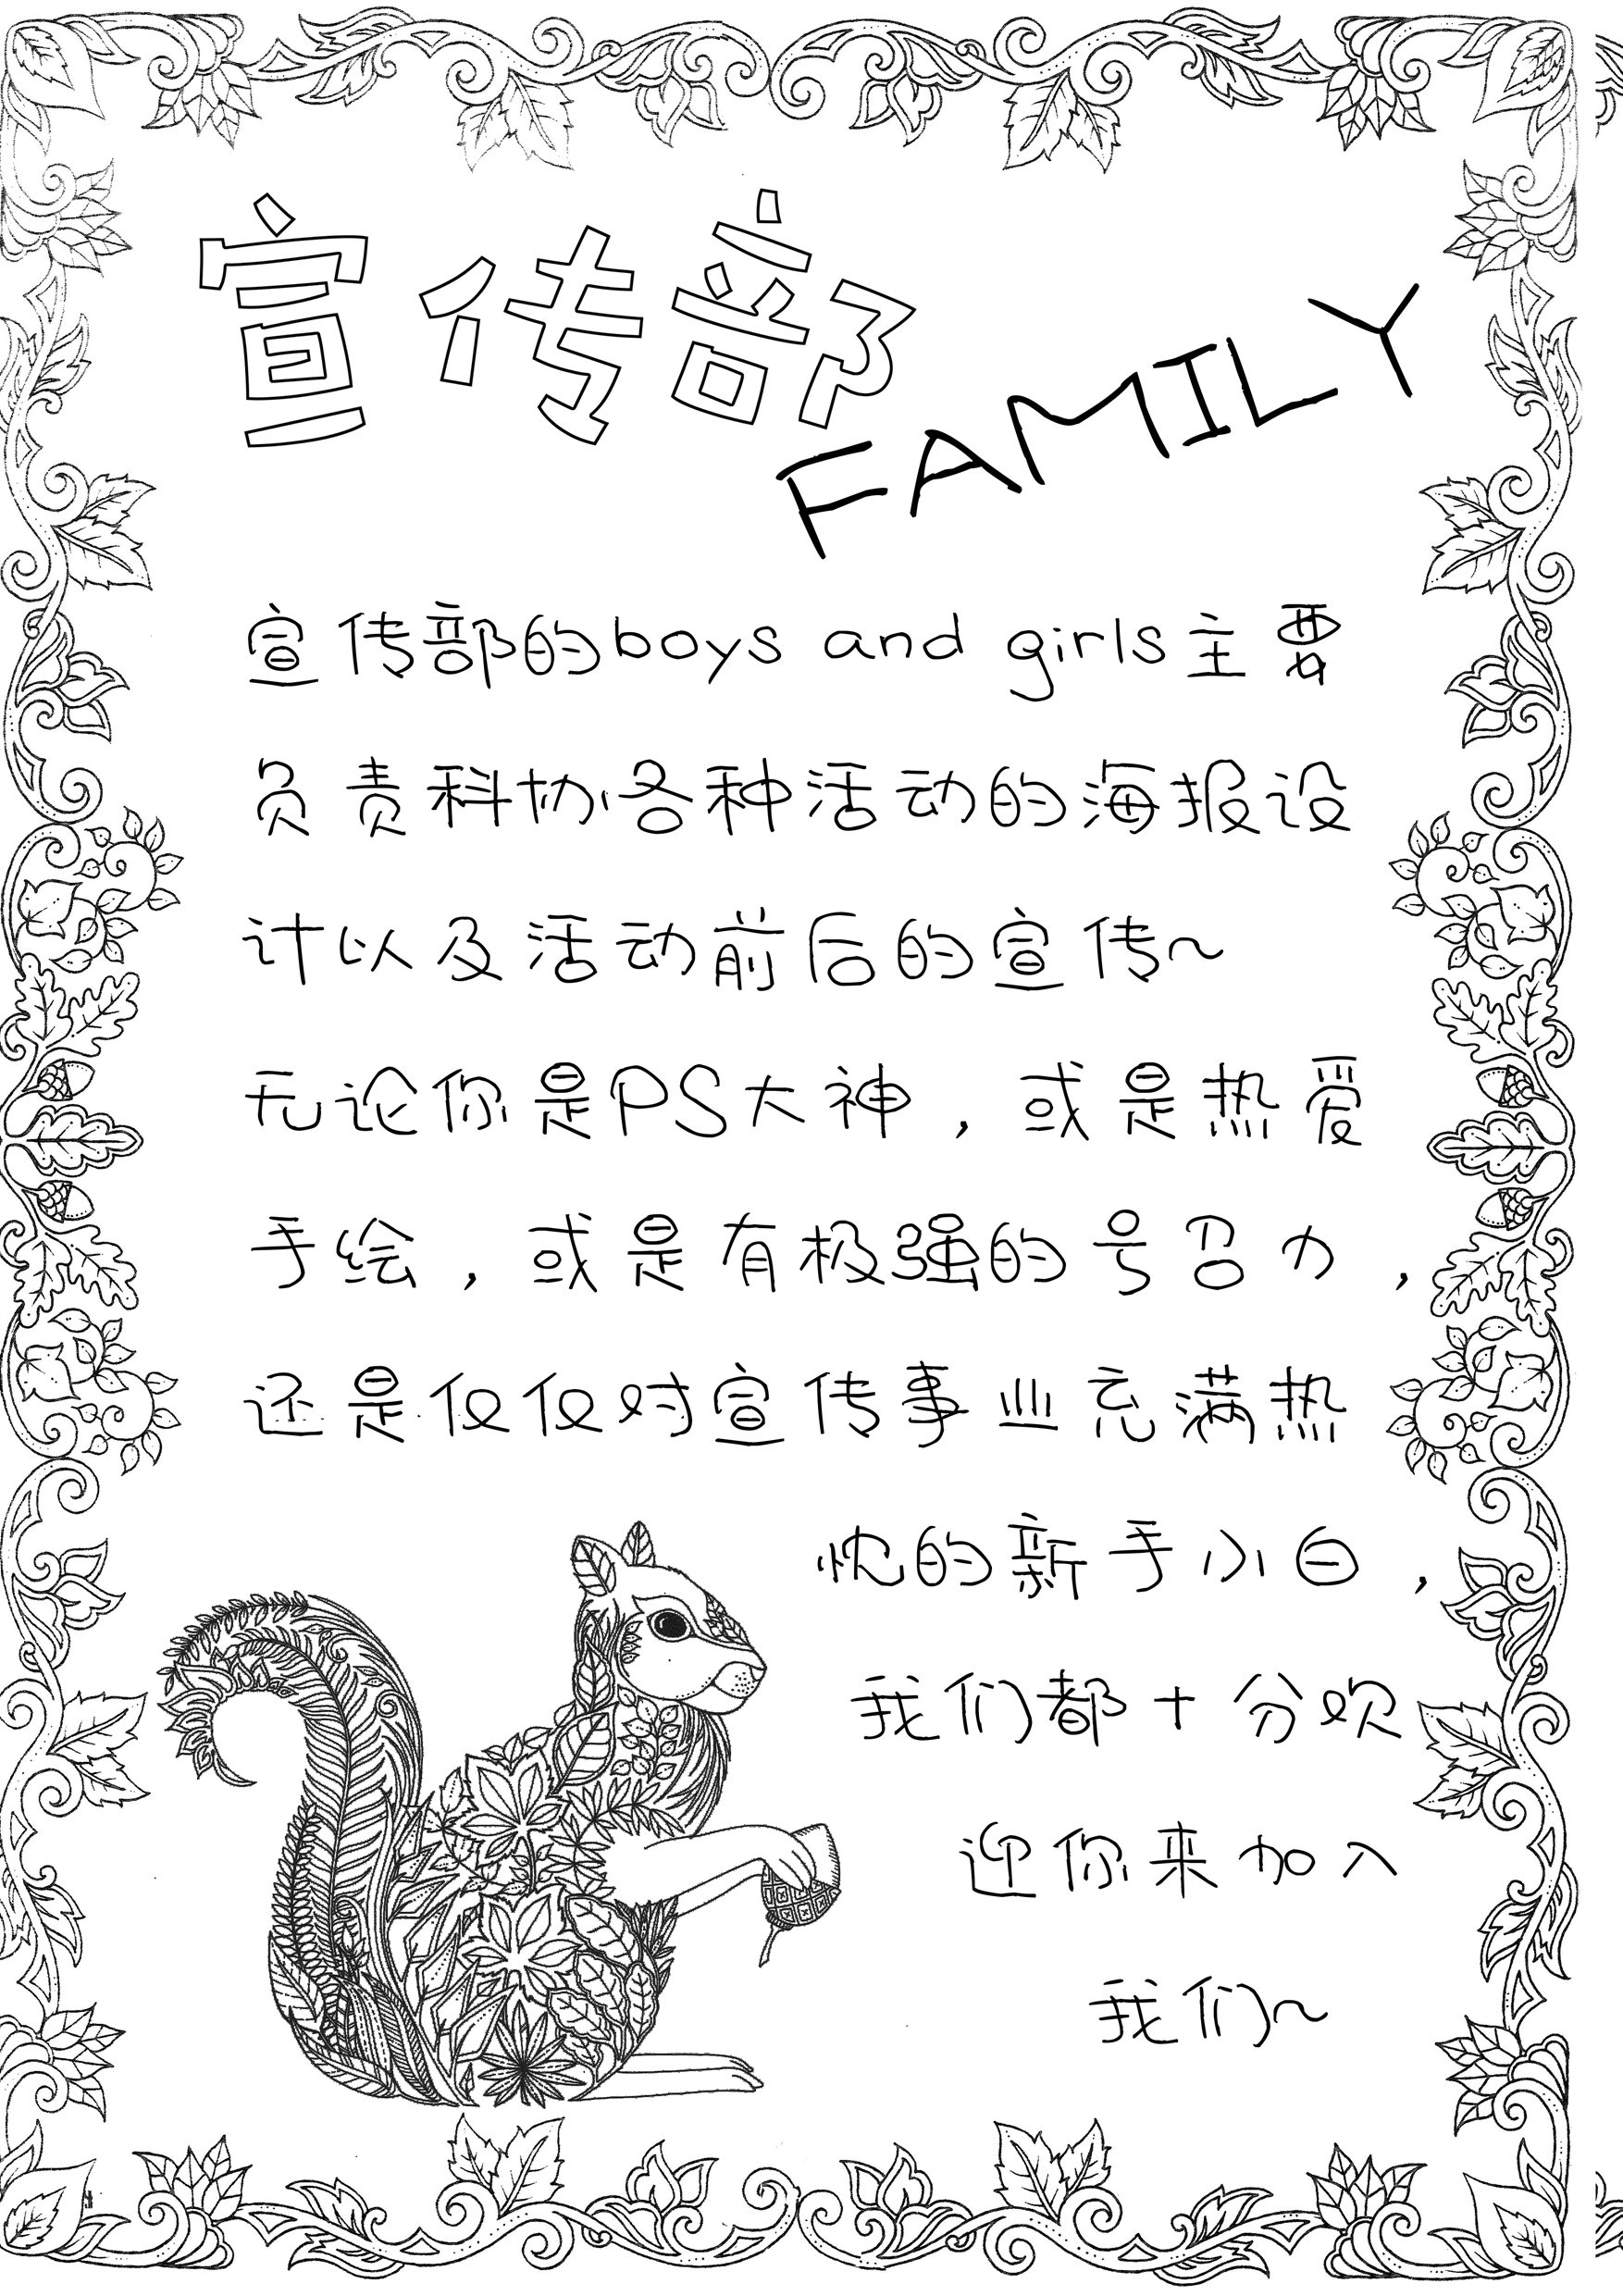 宣传部
FAMILY
宣传部的boys and girls主要
负责科协各种活动的海报设
计以及活动前后的宣传~
无论你是PS大神，或是热爱
手绘，或是有极强的号召力，
还是仅仅对宣传事业充满热
忱的新手小白，
我们都十分欢
迎你来加入
我们~